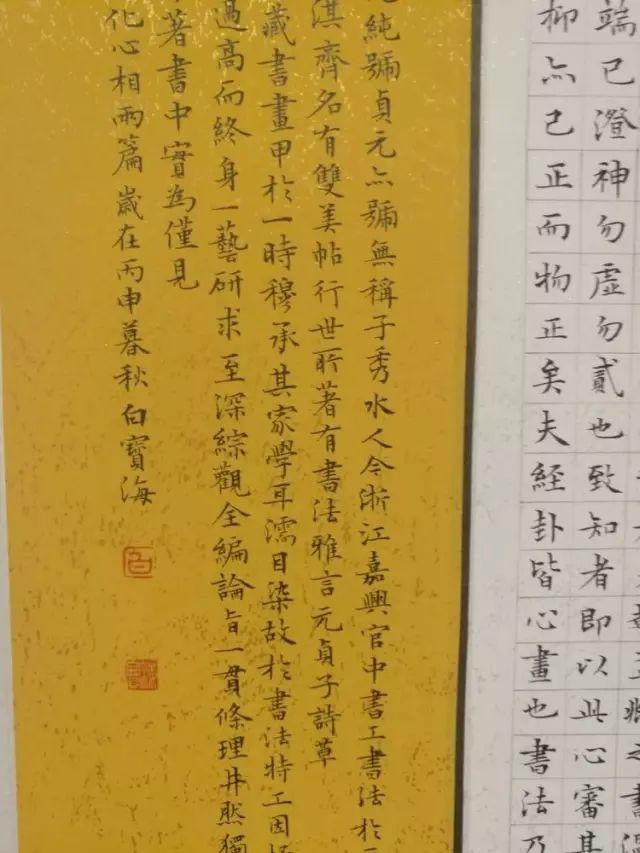 端己澄神勿虛勿貳也致知者即以此心審其
抑亦己正而物正矣夫經卦皆心畫也書法乃
純號貞元亦號無稱子秀水人今浙江嘉興官中書工書法於
淇齊名有雙美帖行世所著有書法雅言元貞子詩草
藏書畫甲於一時穆承其家學耳濡目染故於書法特工因
過高而終身一藝研求至深綜觀全編論旨一貫條理井然獨
著書中實為僅見
化心相兩篇歲在丙申暮秋白寶海
白